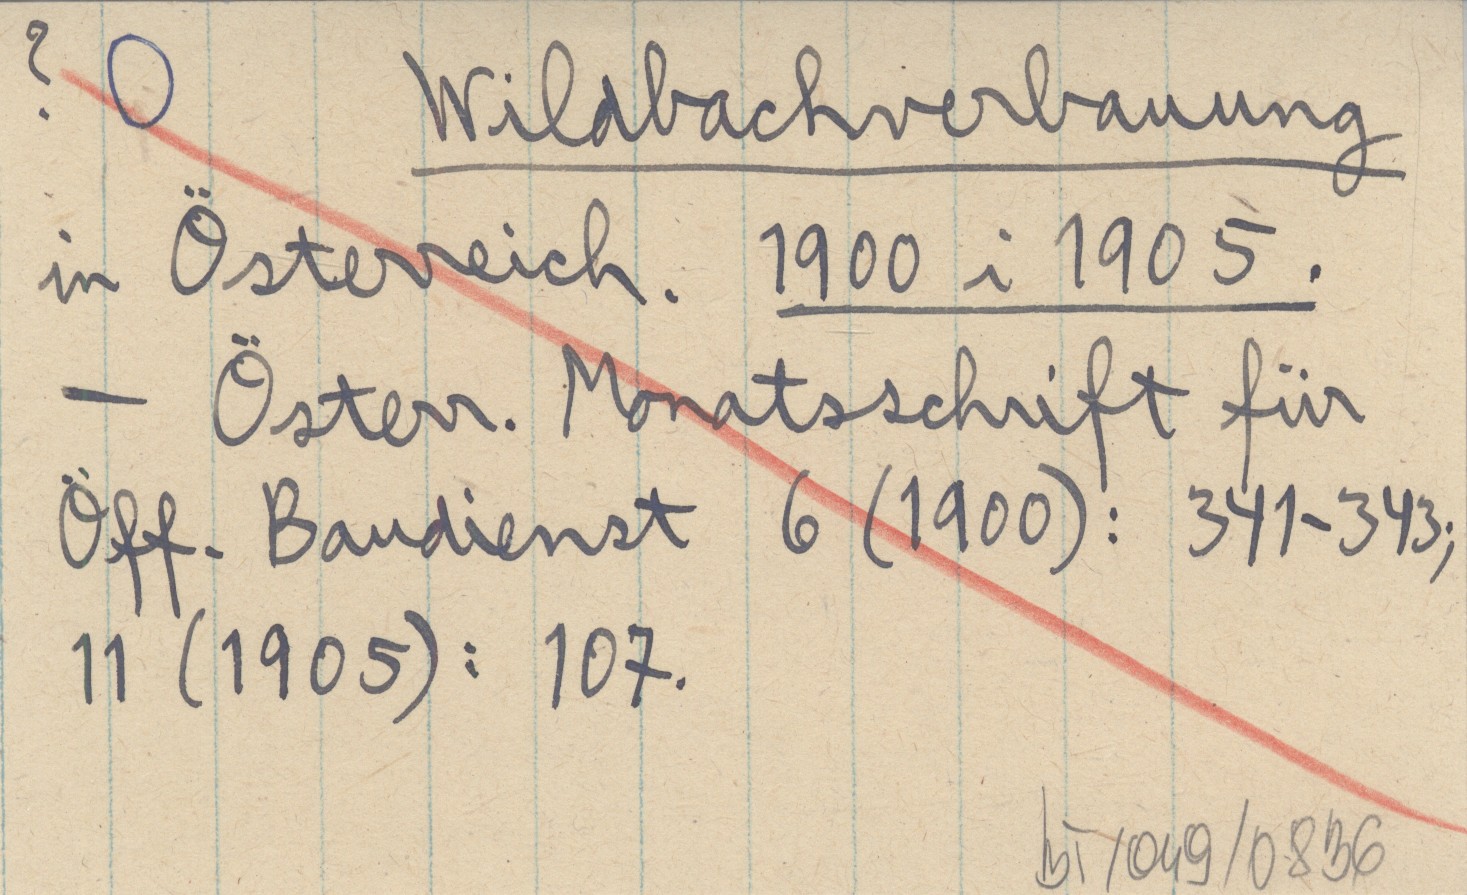 ? O Wildbachverbauung
in Österreich. 1900 i 1905.
— Österr. Monatsschrift für
Öff. Baudienst 6 (1900): 341-343;
11 (1905): 107.
bT/049/0836